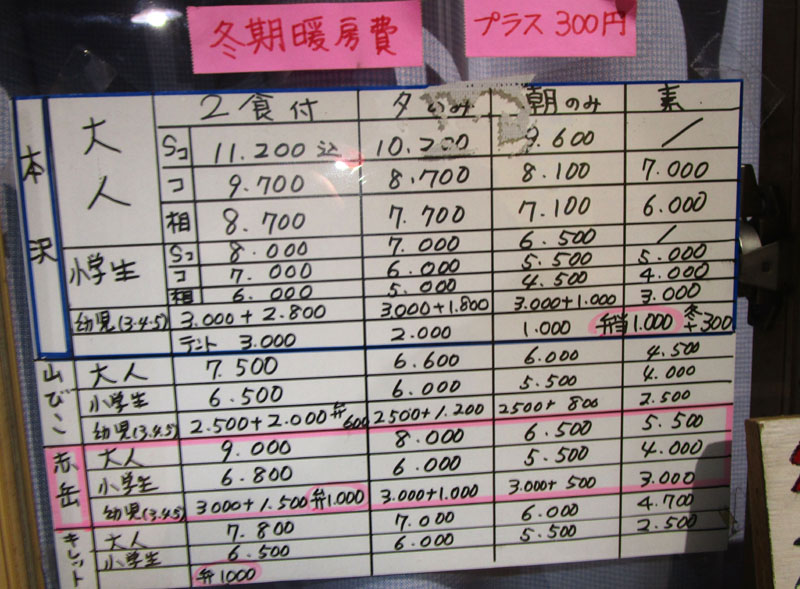 冬期暖房費 プラス 300円
2食付 夕のみ 朝のみ 素
本沢
大人
Sコ 11.200込 10.200 9.600 /
コ 9.700 8.700 8.100 7.000
相 8.700 7.700 7.100 6.000
小学生
Sコ 8.000 7.000 6.500 /
コ 7.000 6.000 5.500 5.000
相 6.000 5.000 4.500 4.000
幼児(3.4.5) 3.000+2.800 3.000+1.800 3.000+1.000 3.000
テント 3.000 2.000 1.000 弁当1.000 冬+300
山びこ
大人 7.500 6.600 6.000 4.500
小学生 6.500 6.000 5.500 4.000
幼児(3.4.5) 2.500+2.000 弁600 2500+1.200 2500+800 2.500
赤岳
大人 9.000 8.000 6.500 5.500
小学生 6.800 6.000 5.500 4.000
幼児(3.4.5) 3000+1.500 弁1.000 3.000+1.000 3.000+500 3.000
キレット
大人 7.800 7.000 6.000 4.700
小学生 6.500 6.000 5.500 2.500
弁1000